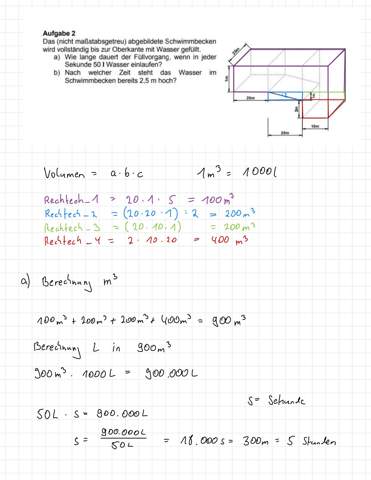 Aufgabe 2
Das (nicht maßstabsgetreu) abgebildete Schwimmbecken
wird vollständig bis zur Oberkante mit Wasser gefüllt.
a) Wie lange dauert der Füllvorgang, wenn in jeder
Sekunde 50 l Wasser einlaufen?
b) Nach welcher Zeit steht das Wasser im
Schwimmbecken bereits 2,5 m hoch?
20m
20m
10m
20m
Volumen = a · b · c 1m³ = 1000L
Rechteck_1 = 20 · 1 · 5 = 100m³
Rechteck_2 = (20 · 20 · 1) : 2 = 200m³
Rechteck_3 = (20 · 10 · 1) = 200m³
Rechteck_4 = 2 · 10 · 20 = 400 m³
a) Berechnung m³
100m³ + 200m³ + 200m³ + 400m³ = 900m³
Berechnung L in 900m³
900m³ · 1000L = 900.000L
s = Sekunde
50L · s = 900.000L
s = 900.000L / 50L = 18.000s = 300m = 5 Stunden